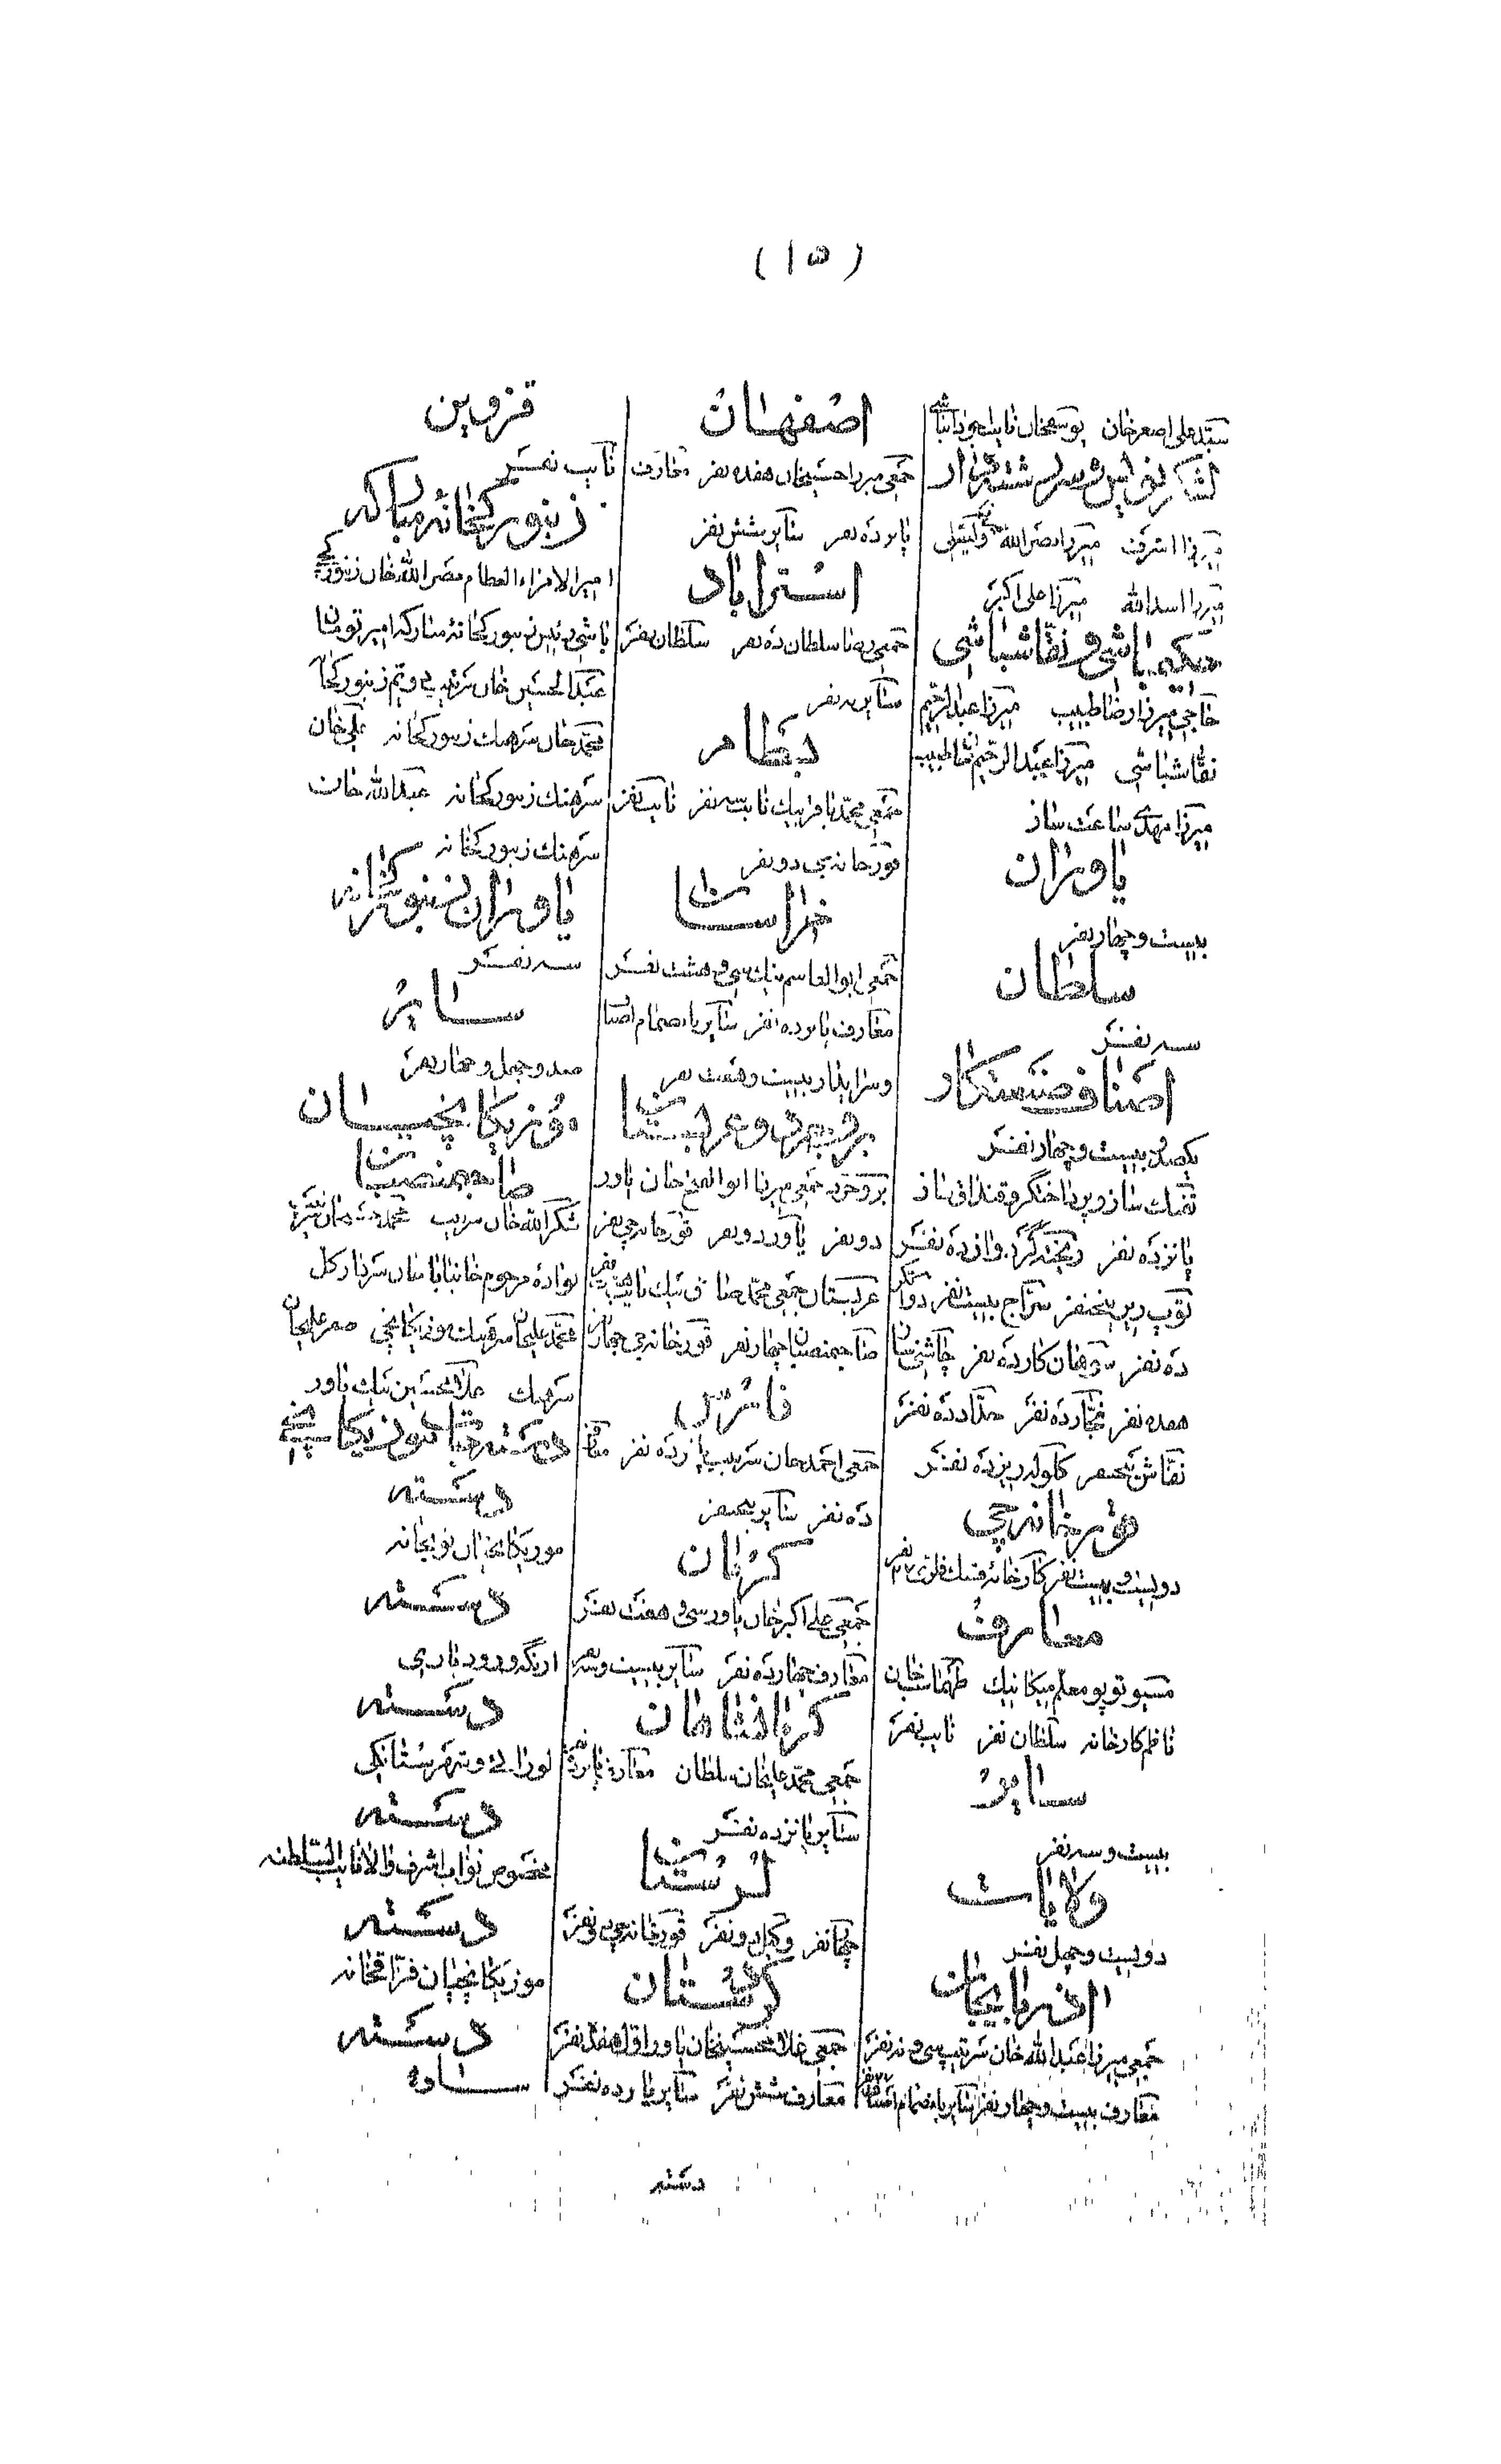 (۱۵)
سید علی اصغر خان یوسفخان نایب
لشکر نویس و سررشته دار
میرزا اشرف میرزا نصرالله
میرزا اسدالله میرزا علی اکبر
حکیم باشی و نقاشباشی
حاجی میرزا رضا طبیب میرزا عبدالرحیم
نقاشباشی میرزا عبدالرحیم طبیب
میرزا مهدی ساعت ساز
یاوران
بیست و چهار نفر
سلطان
سه نفر
اصناف صنعتکار
یکصد و بیست و چهار نفر
تفنک ساز و پرداختگر و قنداق ساز
پانزده نفر ریخته گر دوازده نفر
توپ ریز پنجنفر سراج بیست نفر
ده نفر سوهان کار ده نفر چاشنی ساز
هفده نفر نجار ده نفر حداد ده نفر
نقاش پنجنفر کلوله ریز ده نفر
قورخانه چی
دویست و بیست نفر کارخانه فشنک
معارف
مسیو توپو معلم میکانیک طهماسب خان
ناظم کارخانه سلطان نفر نایب نفر
سایر
بیست و سه نفر
ولایات
دویست و چهل نفر
اذربایجان
جمعی میرزا عبدالله خان سرتیپ سی و نه نفر
معارف بیست و چهار نفر سایر بانضمام
اصفهان
جمعی میرزا حسینخان هفده نفر معارف
یازده نفر سایر شش نفر
استراباد
جمعی رضا سلطان ده نفر سلطان نفر
سایر نه نفر
بسطام
جمعی محمد باقر بیک نایب سه نفر نایب نفر
قورخانه چی دو نفر
خراسان
جمعی ابوالقاسم بیک سی و هشت نفر
معارف یازده نفر سایر بانضمام
و سرایدار بیست و هفت نفر
بروجرد و عربستان
بروجرد جمعی میرزا ابوالفتح خان یاور
دو نفر یاور دو نفر قورخانه چی نفر
عربستان جمعی محمد صادق بیک نایب
صاحبمنصبان چهار نفر قورخانه چی
فارس
جمعی احمد خان سرتیپ پانزده نفر معارف
ده نفر سایر پنجنفر
کرمان
جمعی علی اکبر خان یاور سی و هفت نفر
معارف چهارده نفر سایر بیست و سه نفر
کرمانشاهان
جمعی محمد علیخان سلطان معارف
سایر پانزده نفر
لرستان
چهار نفر وکیل دو نفر قورخانه چی دو نفر
کردستان
جمعی غلامحسینخان یاور اول هفده نفر
معارف شش نفر سایر یازده نفر
قزوین
نایب نفر
زنبورکخانه مبارکه
امیرالامراء العظام نصرالله خان زنبورکچی
باشی و رئیس زنبورکخانه مبارکه امیر تومان
عبدالحسین خان سرتیپ سیم زنبورکخانه
محمد خان سرهنک زنبورکخانه علی خان
سرهنک زنبورکخانه عبدالله خان
سرهنک زنبورکخانه
یاوران زنبورکخانه
سه نفر
سایر
صد و چهل و چهار نفر
موزیکانچیان
صاحبمنصبان
شکرالله خان سرتیپ
نواده مرحوم خانبابا خان سردار کل
محمد علیخان سرهنک موزیکانچی صفر علیخان
سرهنک غلامحسین بیک یاور
دسته موزیکانچی
دسته
موزیکانچیان توپخانه
دسته
ارنگه و رودباری
دسته
لورائی و شهرستانکی
دسته
مخصوص نواب اشرف والا نایب السلطنه
دسته
موزیکانچیان قزاقخانه
دسته
ساوه
دسته